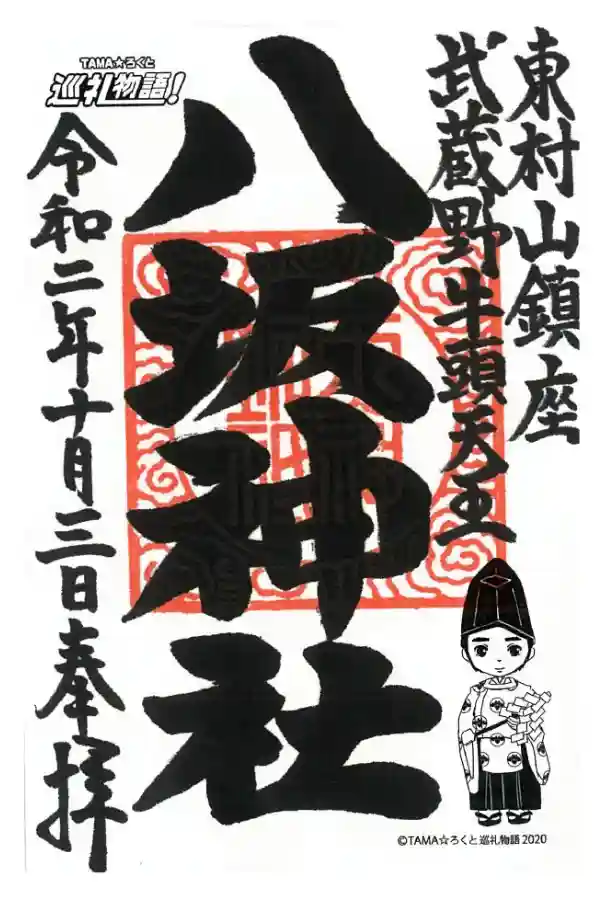 東村山鎮座
武蔵野牛頭天王
八坂神社
令和二年十月三日奉拝
TAMA☆ろくと
巡礼物語!
©TAMA☆ろくと巡礼物語 2020